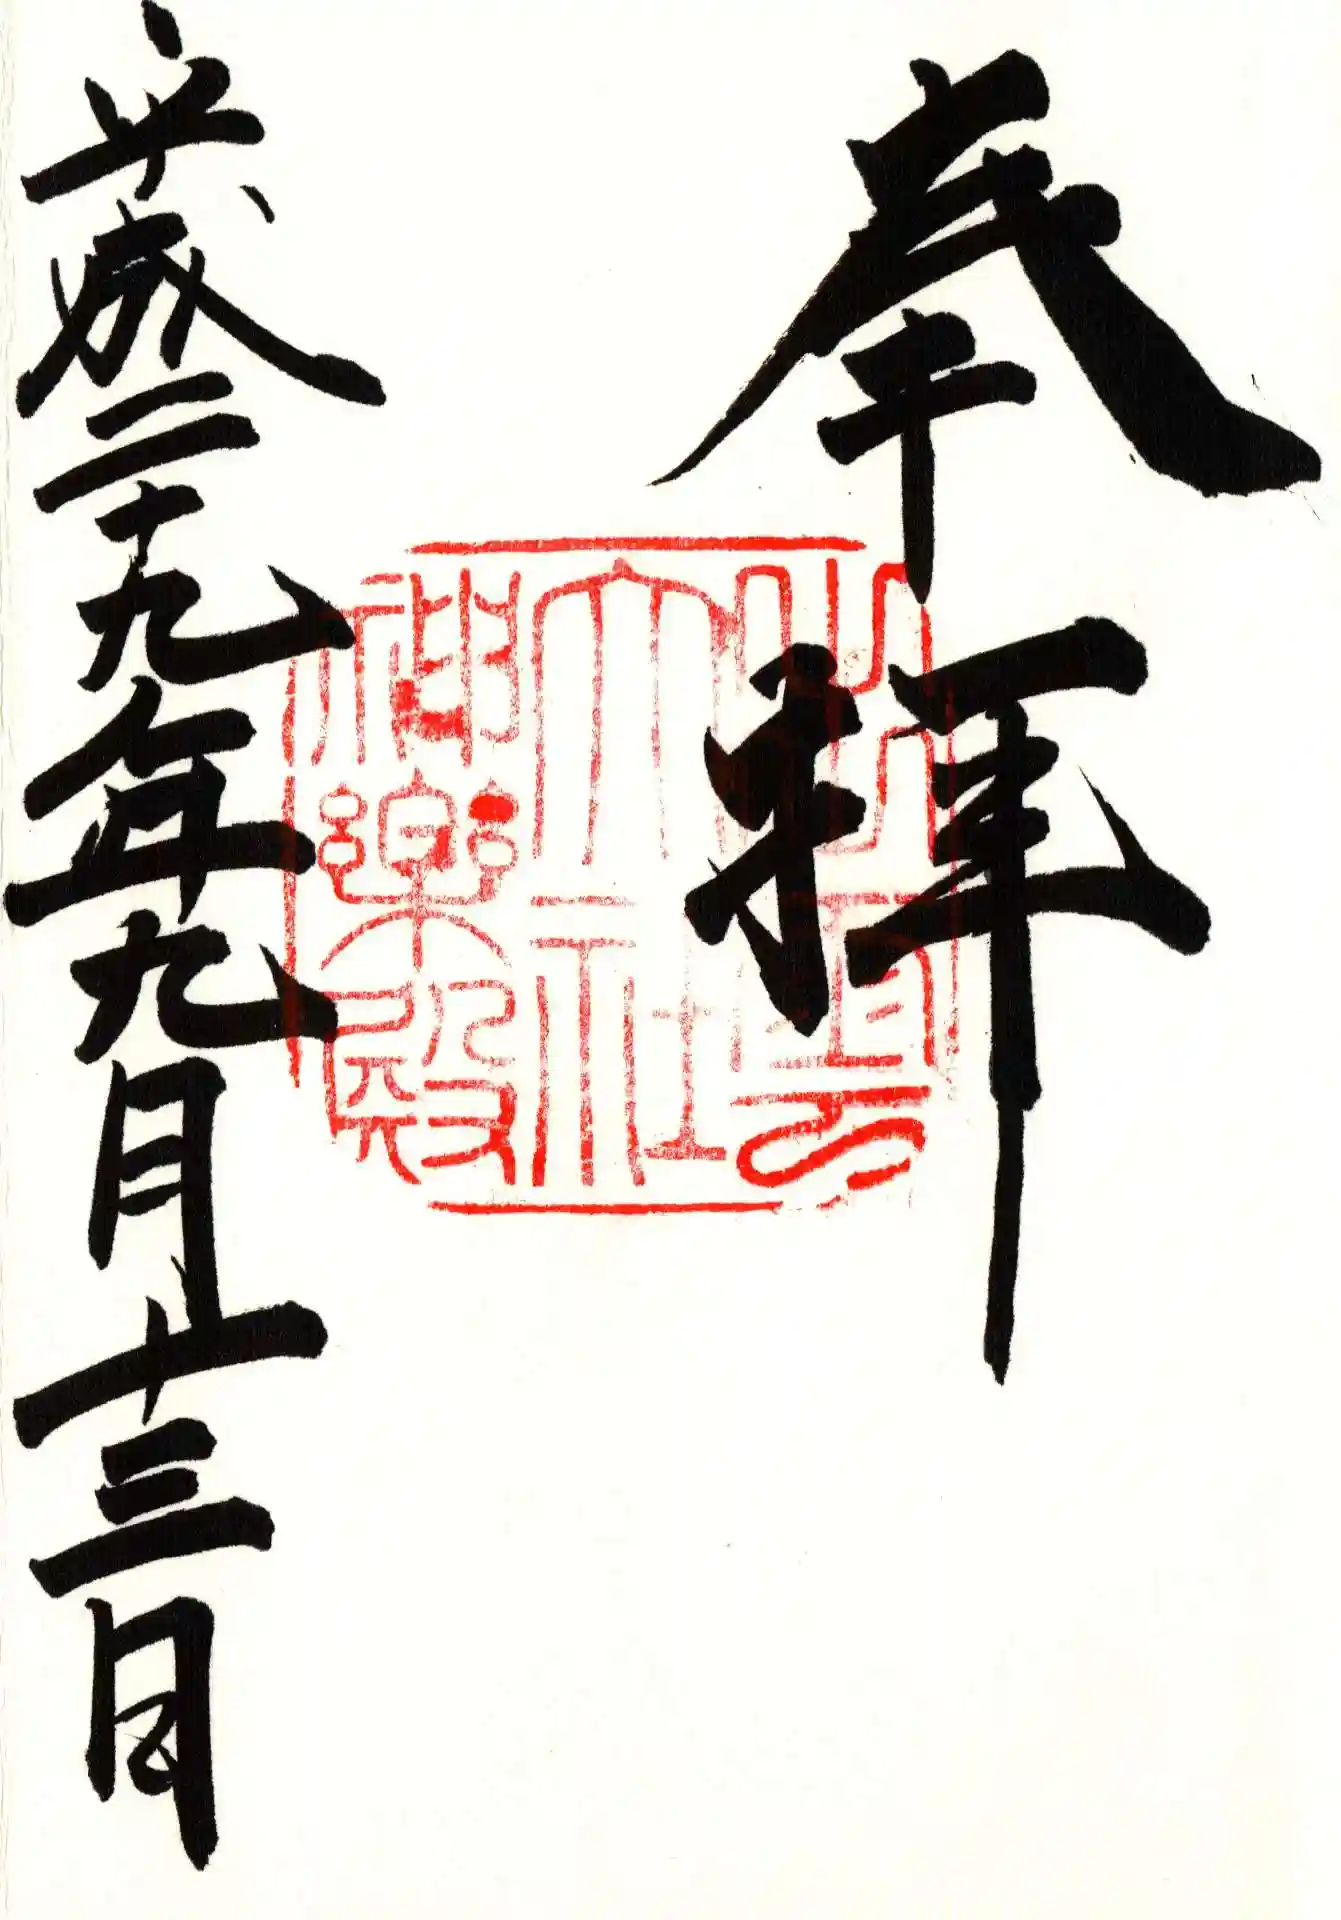 奉拝
出雲
大社
神楽殿
平成二十九年九月十三日